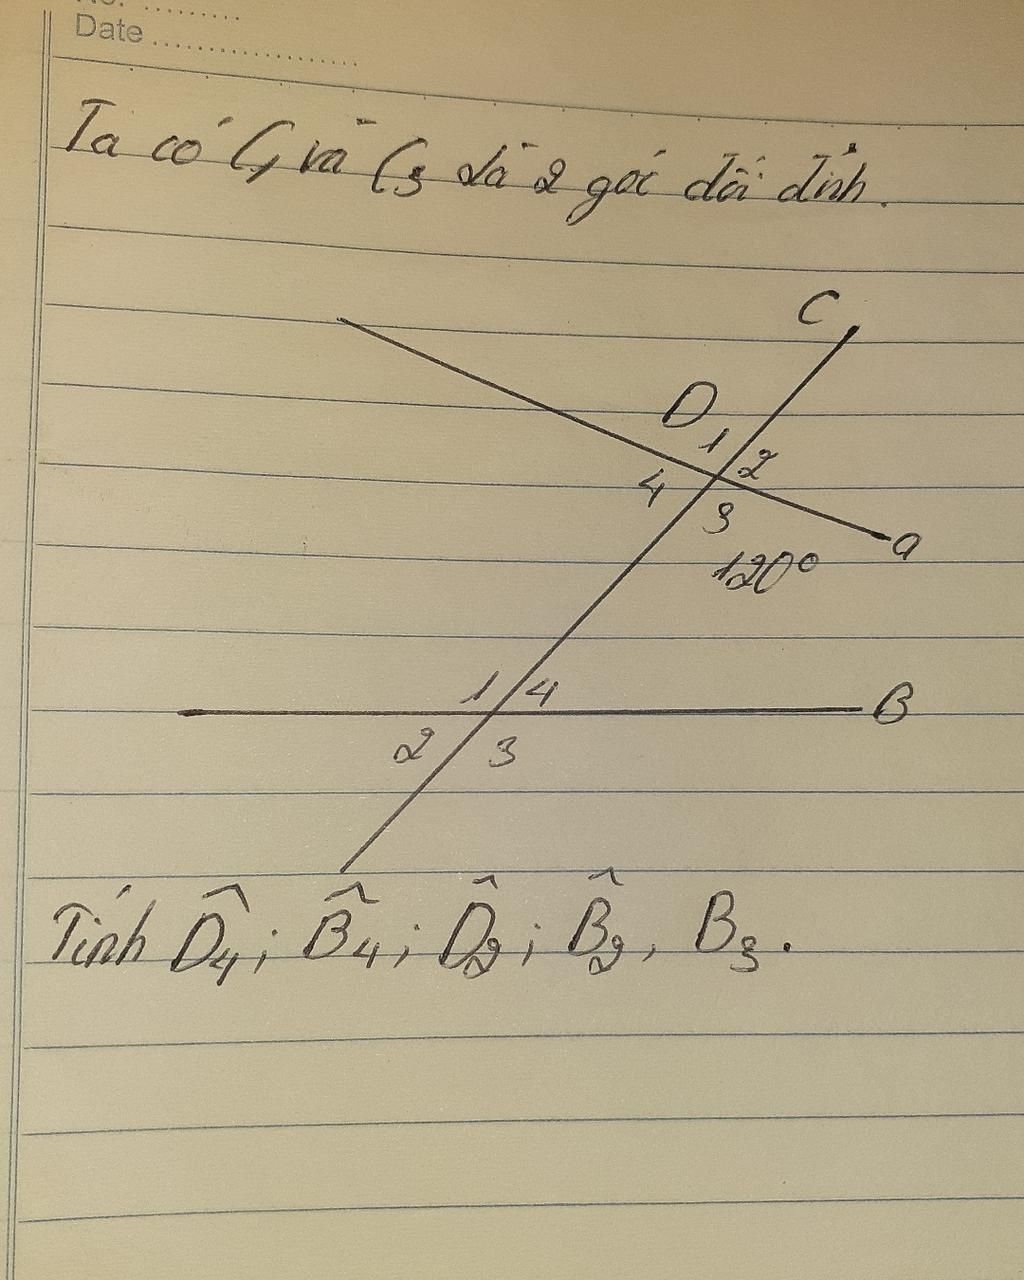 No. ..........
Date ....................
Ta có C₁ và C₃ là 2 góc đối đỉnh.
C
D
1
2
4
3
a
120°
1
4
B
2
3
Tính D̂₄; B̂₄; D̂₂; B̂₂, B₃.